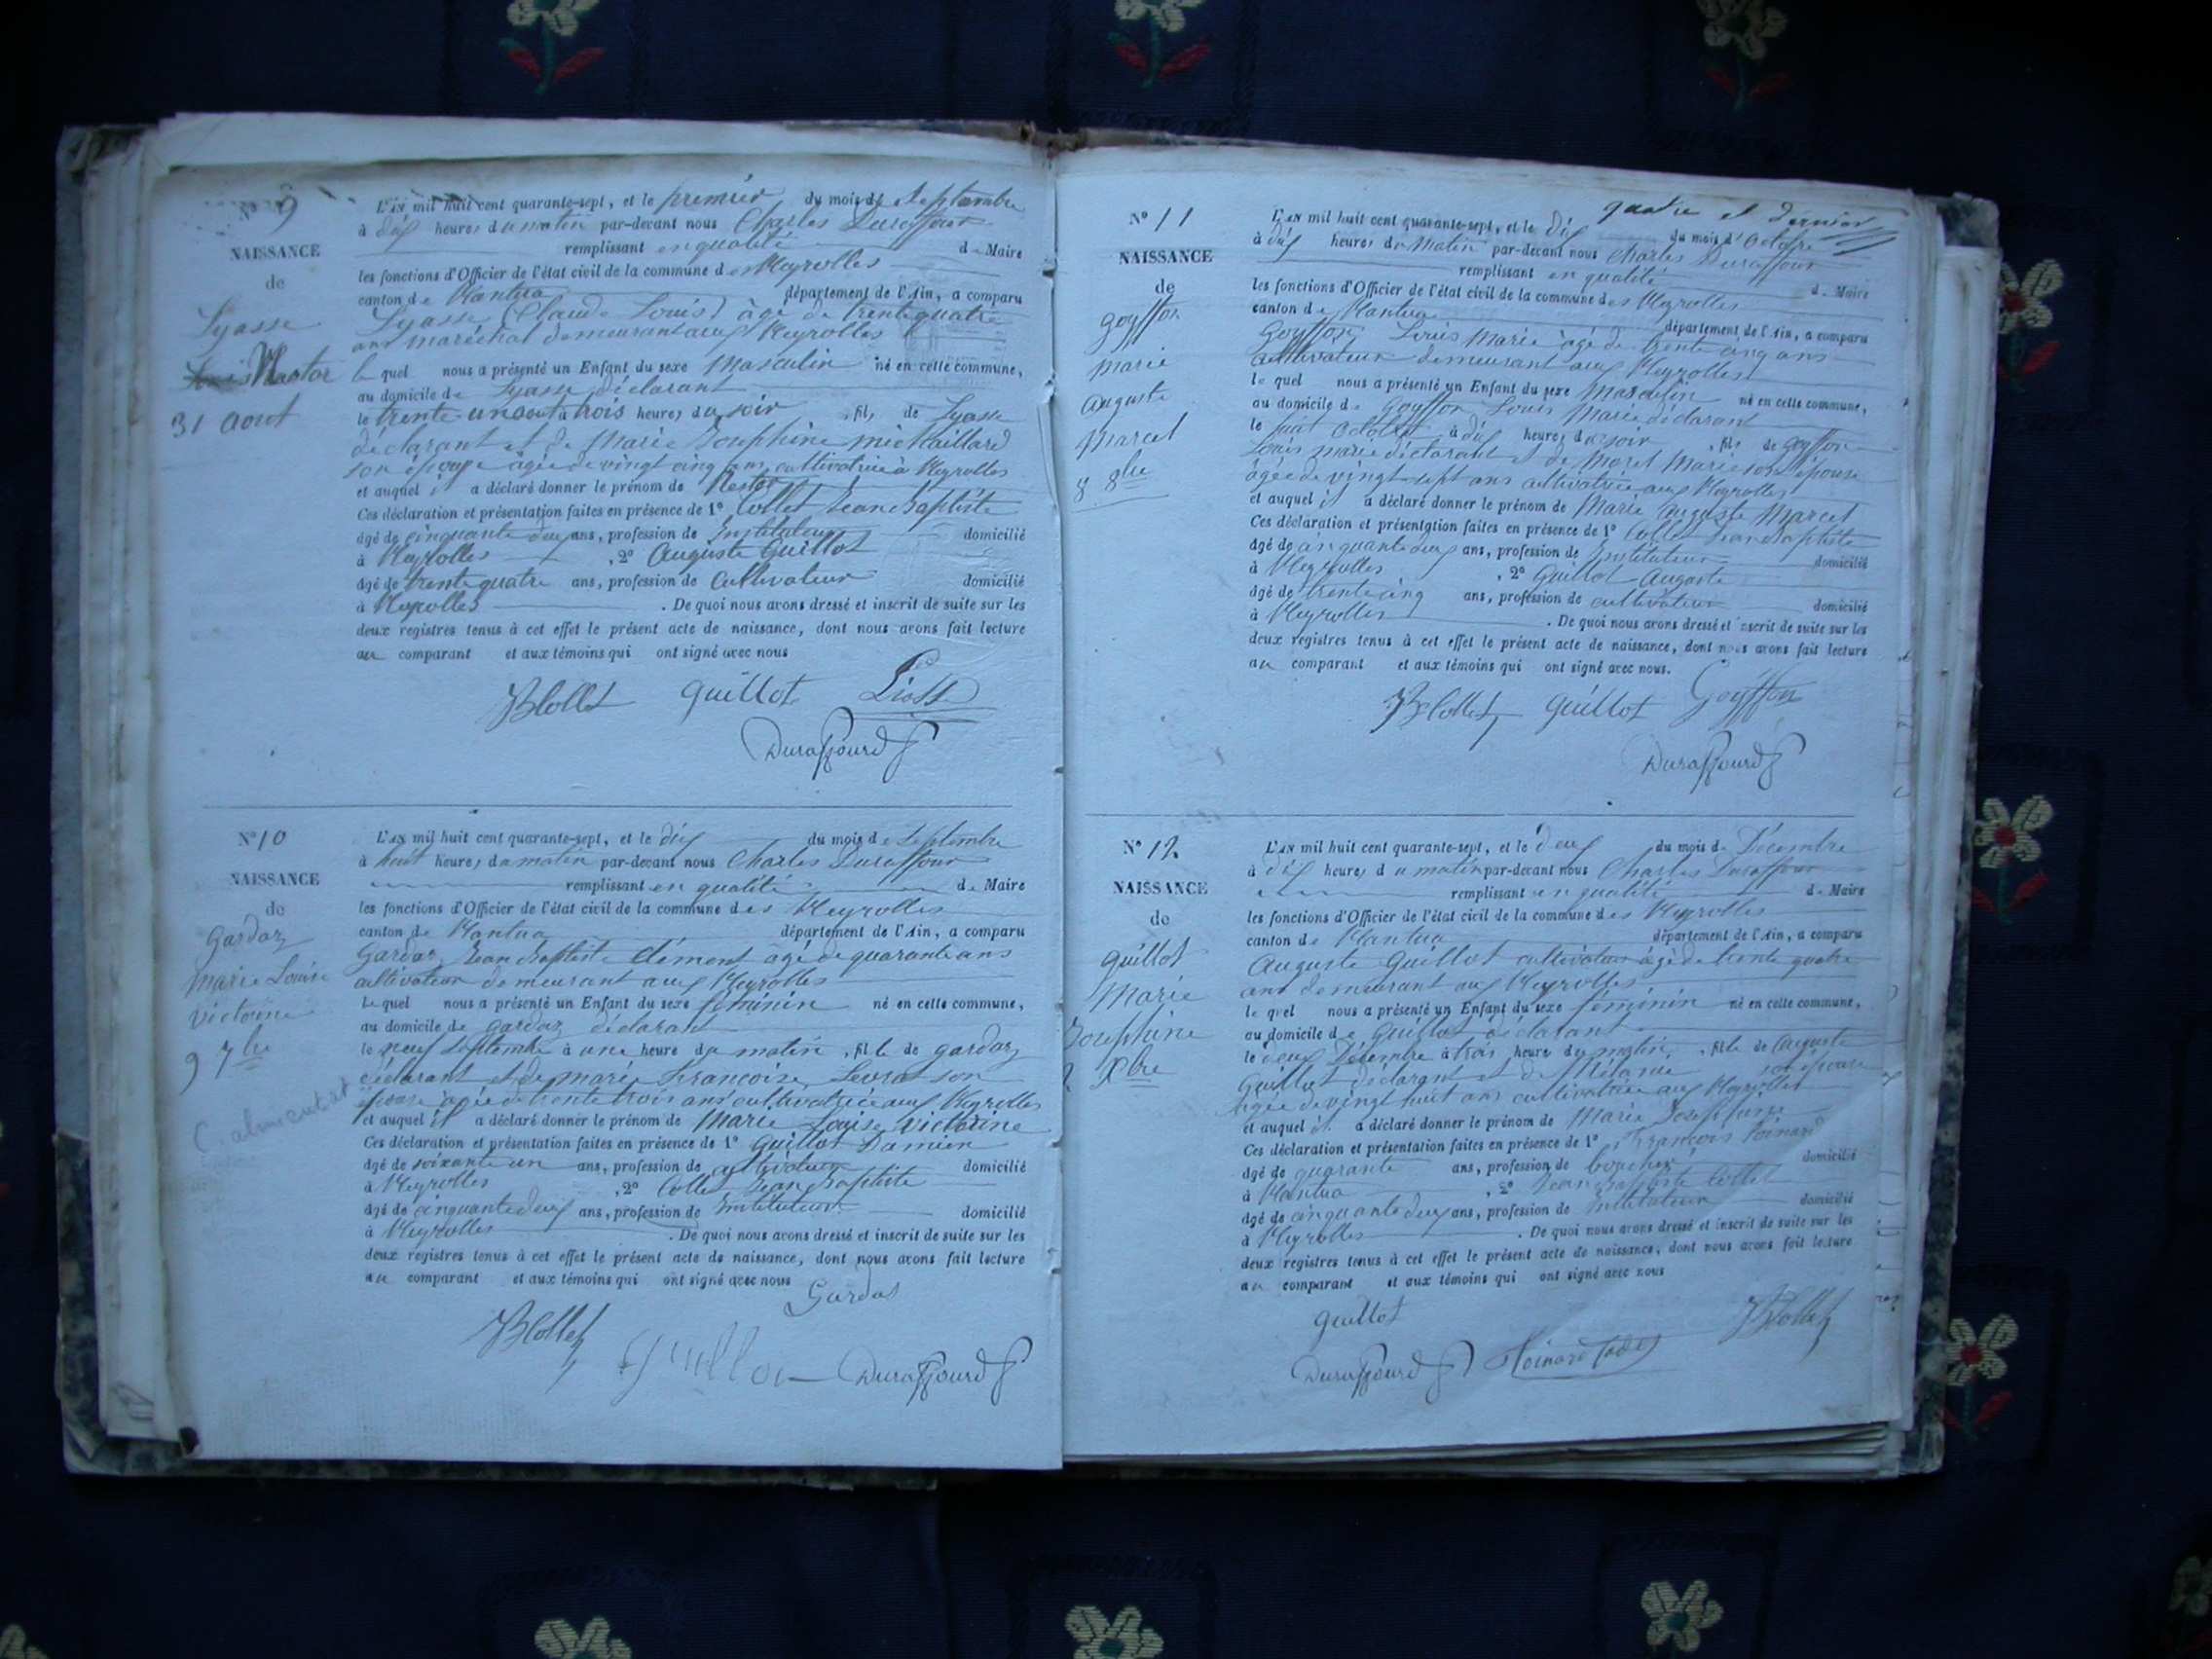 N° 9
NAISSANCE
de
Lyasse
Nestor
31 aout
L'AN mil huit cent quarante-sept, et le premier du mois de Septembre
à dix heures du matin par-devant nous Charles Duraffour
remplissant en qualité de Maire
les fonctions d'Officier de l'état civil de la commune des Neyrolles
canton de Nantua département de l'Ain, a comparu
Lyasse (Claude Louis) âgé de trente quatre
ans maréchal demeurant aux Neyrolles
le quel nous a présenté un Enfant du sexe Masculin né en cette commune,
au domicile de Lyasse déclarant
le trente un aout à trois heures du soir, fils de Lyasse
déclarant et de Marie Josephine michaillard
son épouse âgée de vingt cinq ans cultivatrice à Neyrolles
et auquel il a déclaré donner le prénom de Nestor
Ces déclaration et présentation faites en présence de 1° Collet Jean Baptiste
âgé de cinquante deux ans, profession de Instituteur domicilié
à Neyrolles, 2° Auguste Guillot
âgé de trente quatre ans, profession de Cultivateur domicilié
à Neyrolles. De quoi nous avons dressé et inscrit de suite sur les
deux registres tenus à cet effet le présent acte de naissance, dont nous avons fait lecture
au comparant et aux témoins qui ont signé avec nous
JBCollet guillot
Duraffourd
N° 10
NAISSANCE
de
Gardaz
Marie Louise
victorine
9 7bre
L'AN mil huit cent quarante-sept, et le dix du mois de Septembre
à huit heures du matin par-devant nous Charles Duraffour
remplissant en qualité de Maire
les fonctions d'Officier de l'état civil de la commune des Neyrolles
canton de Nantua département de l'Ain, a comparu
Gardaz Jean Baptiste Clément âgé de quarante ans
cultivateur demeurant aux Neyrolles
le quel nous a présenté un Enfant du sexe féminin né en cette commune,
au domicile de gardaz déclarant
le neuf Septembre à une heure du matin, fille de gardaz
déclarant et de marie Francoise Levrat son
épouse âgée de trente trois ans cultivatrice aux Neyrolles
et auquel il a déclaré donner le prénom de Marie Louise Victorine
Ces déclaration et présentation faites en présence de 1° Guillot Damien
âgé de soixante un ans, profession de cultivateur domicilié
à Neyrolles, 2° Collet Jean Baptiste
âgé de cinquante deux ans, profession de Instituteur domicilié
à Neyrolles. De quoi nous avons dressé et inscrit de suite sur les
deux registres tenus à cet effet le présent acte de naissance, dont nous avons fait lecture
au comparant et aux témoins qui ont signé avec nous
Gardas
JBCollet Guillot Duraffourd
quatre et dernier
N° 11
NAISSANCE
de
Goyffon
Marie
auguste
Marcel
8 8bre
L'AN mil huit cent quarante-sept, et le dix du mois d'Octobre
à dix heures du Matin par-devant nous Charles Duraffour
remplissant en qualité de Maire
les fonctions d'Officier de l'état civil de la commune des Neyrolles
canton de Nantua département de l'Ain, a comparu
Goyffon Louis Marie âgé de trente cinq ans
cultivateur demeurant aux Neyrolles
le quel nous a présenté un Enfant du sexe Masculin né en cette commune,
au domicile de Goyffon Louis Marie déclarant
le huit Octobre à dix heures du soir, fils de Goyffon
Louis marie déclarant et de Morel Marie son épouse
âgée de vingt sept ans cultivatrice aux Neyrolles
et auquel il a déclaré donner le prénom de Marie Auguste Marcel
Ces déclaration et présentation faites en présence de 1° Collet Jean Baptiste
âgé de cinquante deux ans, profession de Instituteur domicilié
à Neyrolles, 2° Guillot Auguste
âgé de trente cinq ans, profession de cultivateur domicilié
à Neyrolles. De quoi nous avons dressé et inscrit de suite sur les
deux registres tenus à cet effet le présent acte de naissance, dont nous avons fait lecture
au comparant et aux témoins qui ont signé avec nous.
JBCollet guillot Goyffon
Duraffourd
N° 12
NAISSANCE
de
Guillot
Marie
Josephine
2 Xbre
L'AN mil huit cent quarante-sept, et le deux du mois de Décembre
à dix heures du matin par-devant nous Charles Duraffour
remplissant en qualité de Maire
les fonctions d'Officier de l'état civil de la commune des Neyrolles
canton de Nantua département de l'Ain, a comparu
Auguste Guillot cultivateur âgé de trente quatre
ans demeurant aux Neyrolles
le quel nous a présenté un Enfant du sexe féminin né en cette commune,
au domicile de Guillot déclarant
le deux Décembre à trois heures du matin, fille de Auguste
Guillot déclarant et de son épouse
âgée de vingt huit ans cultivatrice aux Neyrolles
et auquel il a déclaré donner le prénom de Marie Josephine
Ces déclaration et présentation faites en présence de 1° François
âgé de quarante ans, profession de boucher domicilié
à Nantua, 2° Jean Baptiste Collet
âgé de cinquante deux ans, profession de Instituteur domicilié
à Neyrolles. De quoi nous avons dressé et inscrit de suite sur les
deux registres tenus à cet effet le présent acte de naissance, dont nous avons fait lecture
au comparant et aux témoins qui ont signé avec nous
guillot JBCollet
Duraffourd